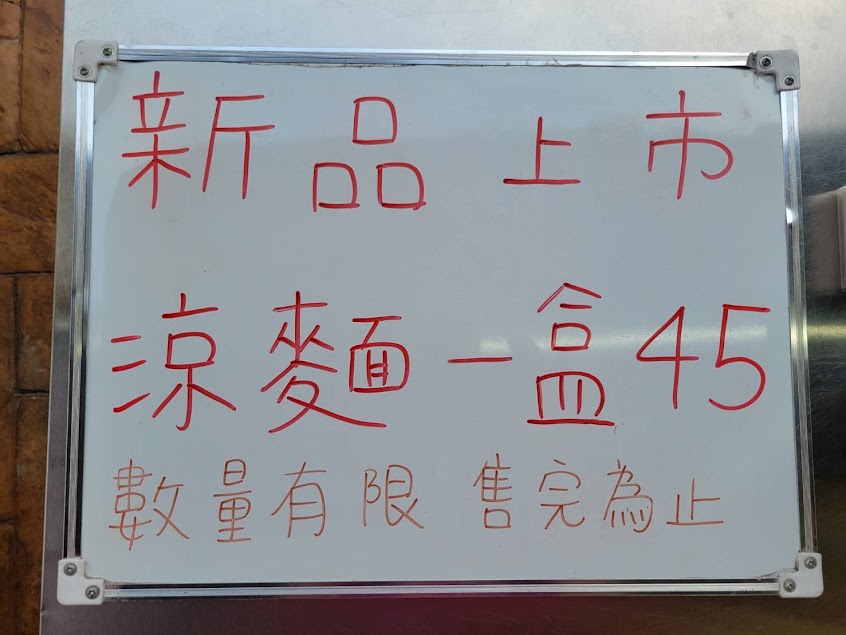 新品上市
涼麵一盒45
數量有限 售完為止